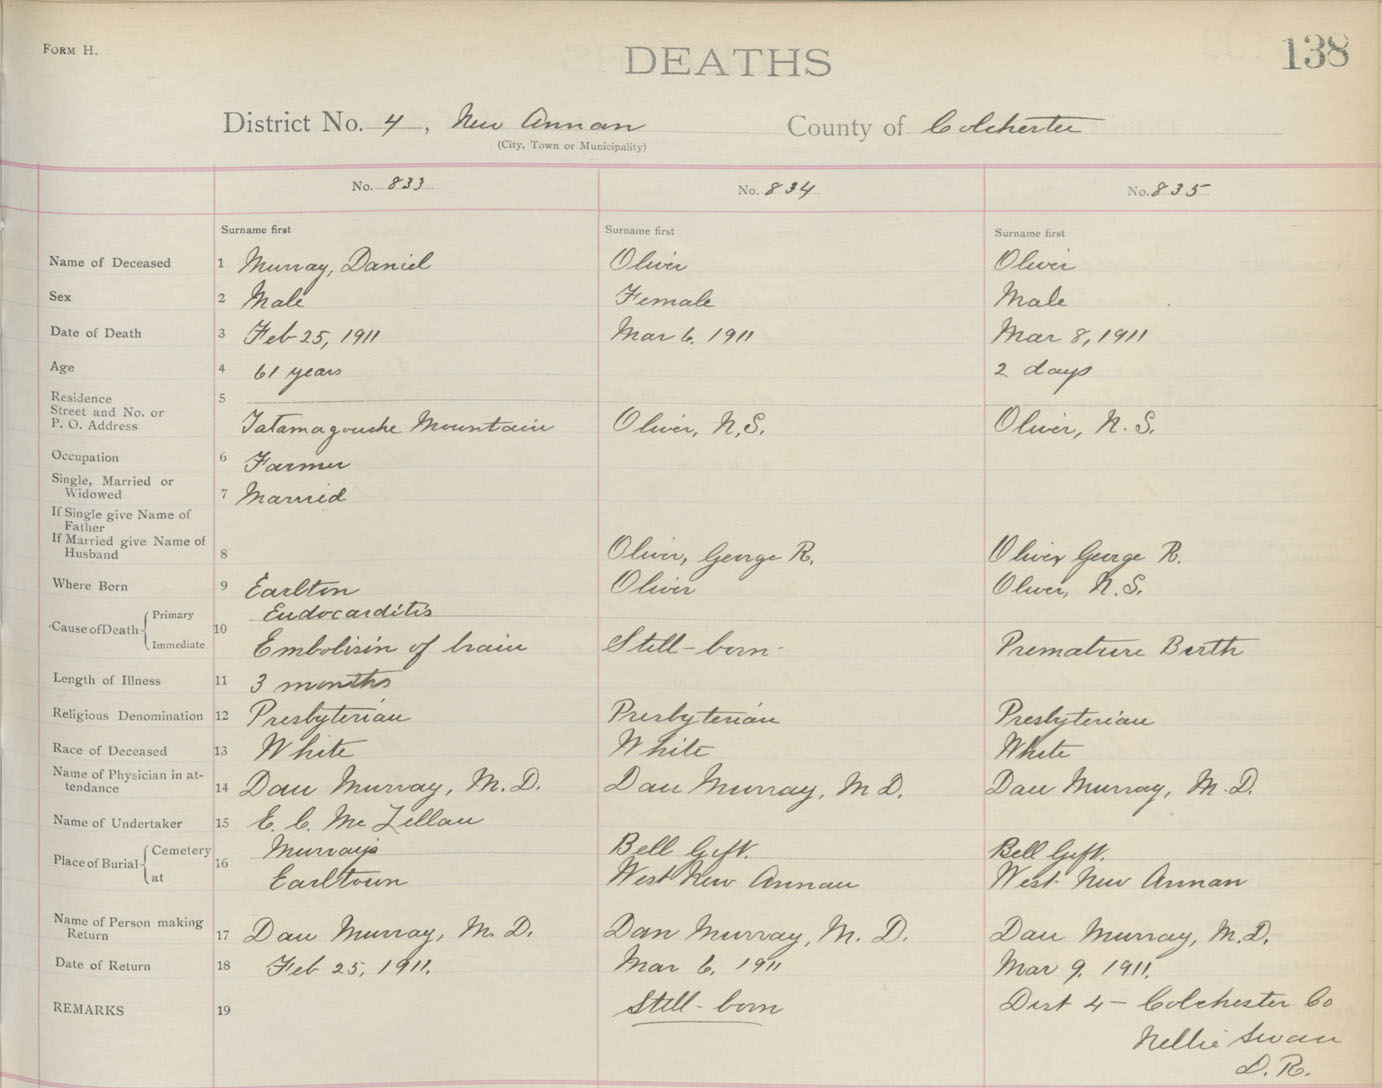 FORM H.
DEATHS
138
District No. 4, New Annan County of Colchester
(City, Town or Municipality)
No. 833 No. 834 No. 835
Surname first Surname first Surname first
Name of Deceased 1 Murray, Daniel Oliver Oliver
Sex 2 Male Female Male
Date of Death 3 Feb 25, 1911 Mar 6, 1911 Mar 8, 1911
Age 4 61 years 2 days
Residence 5
Street and No. or
P. O. Address Tatamagouche Mountain Oliver, N.S. Oliver, N.S.
Occupation 6 Farmer
Single, Married or
Widowed 7 Married
If Single give Name of
Father
If Married give Name of
Husband 8 Oliver, George R. Oliver George R.
Where Born 9 Earlton Oliver Oliver, N.S.
Cause of Death 10 Primary Endocarditis
Immediate Embolism of brain Still-born Premature Birth
Length of Illness 11 3 months
Religious Denomination 12 Presbyterian Presbyterian Presbyterian
Race of Deceased 13 White White White
Name of Physician in at-
tendance 14 Dan Murray, M.D. Dan Murray, M D. Dan Murray, M.D.
Name of Undertaker 15 E. C. McLellan
Place of Burial 16 Cemetery Murrays Bell Gift. Bell Gift.
at Earltown West New Annan West New Annan
Name of Person making
Return 17 Dan Murray, M.D. Dan Murray, M.D. Dan Murray, M.D.
Date of Return 18 Feb 25, 1911. Mar 6, 1911 Mar 9, 1911.
REMARKS 19 Still-born Dist 4 - Colchester Co
Nellie Swan
D.R.